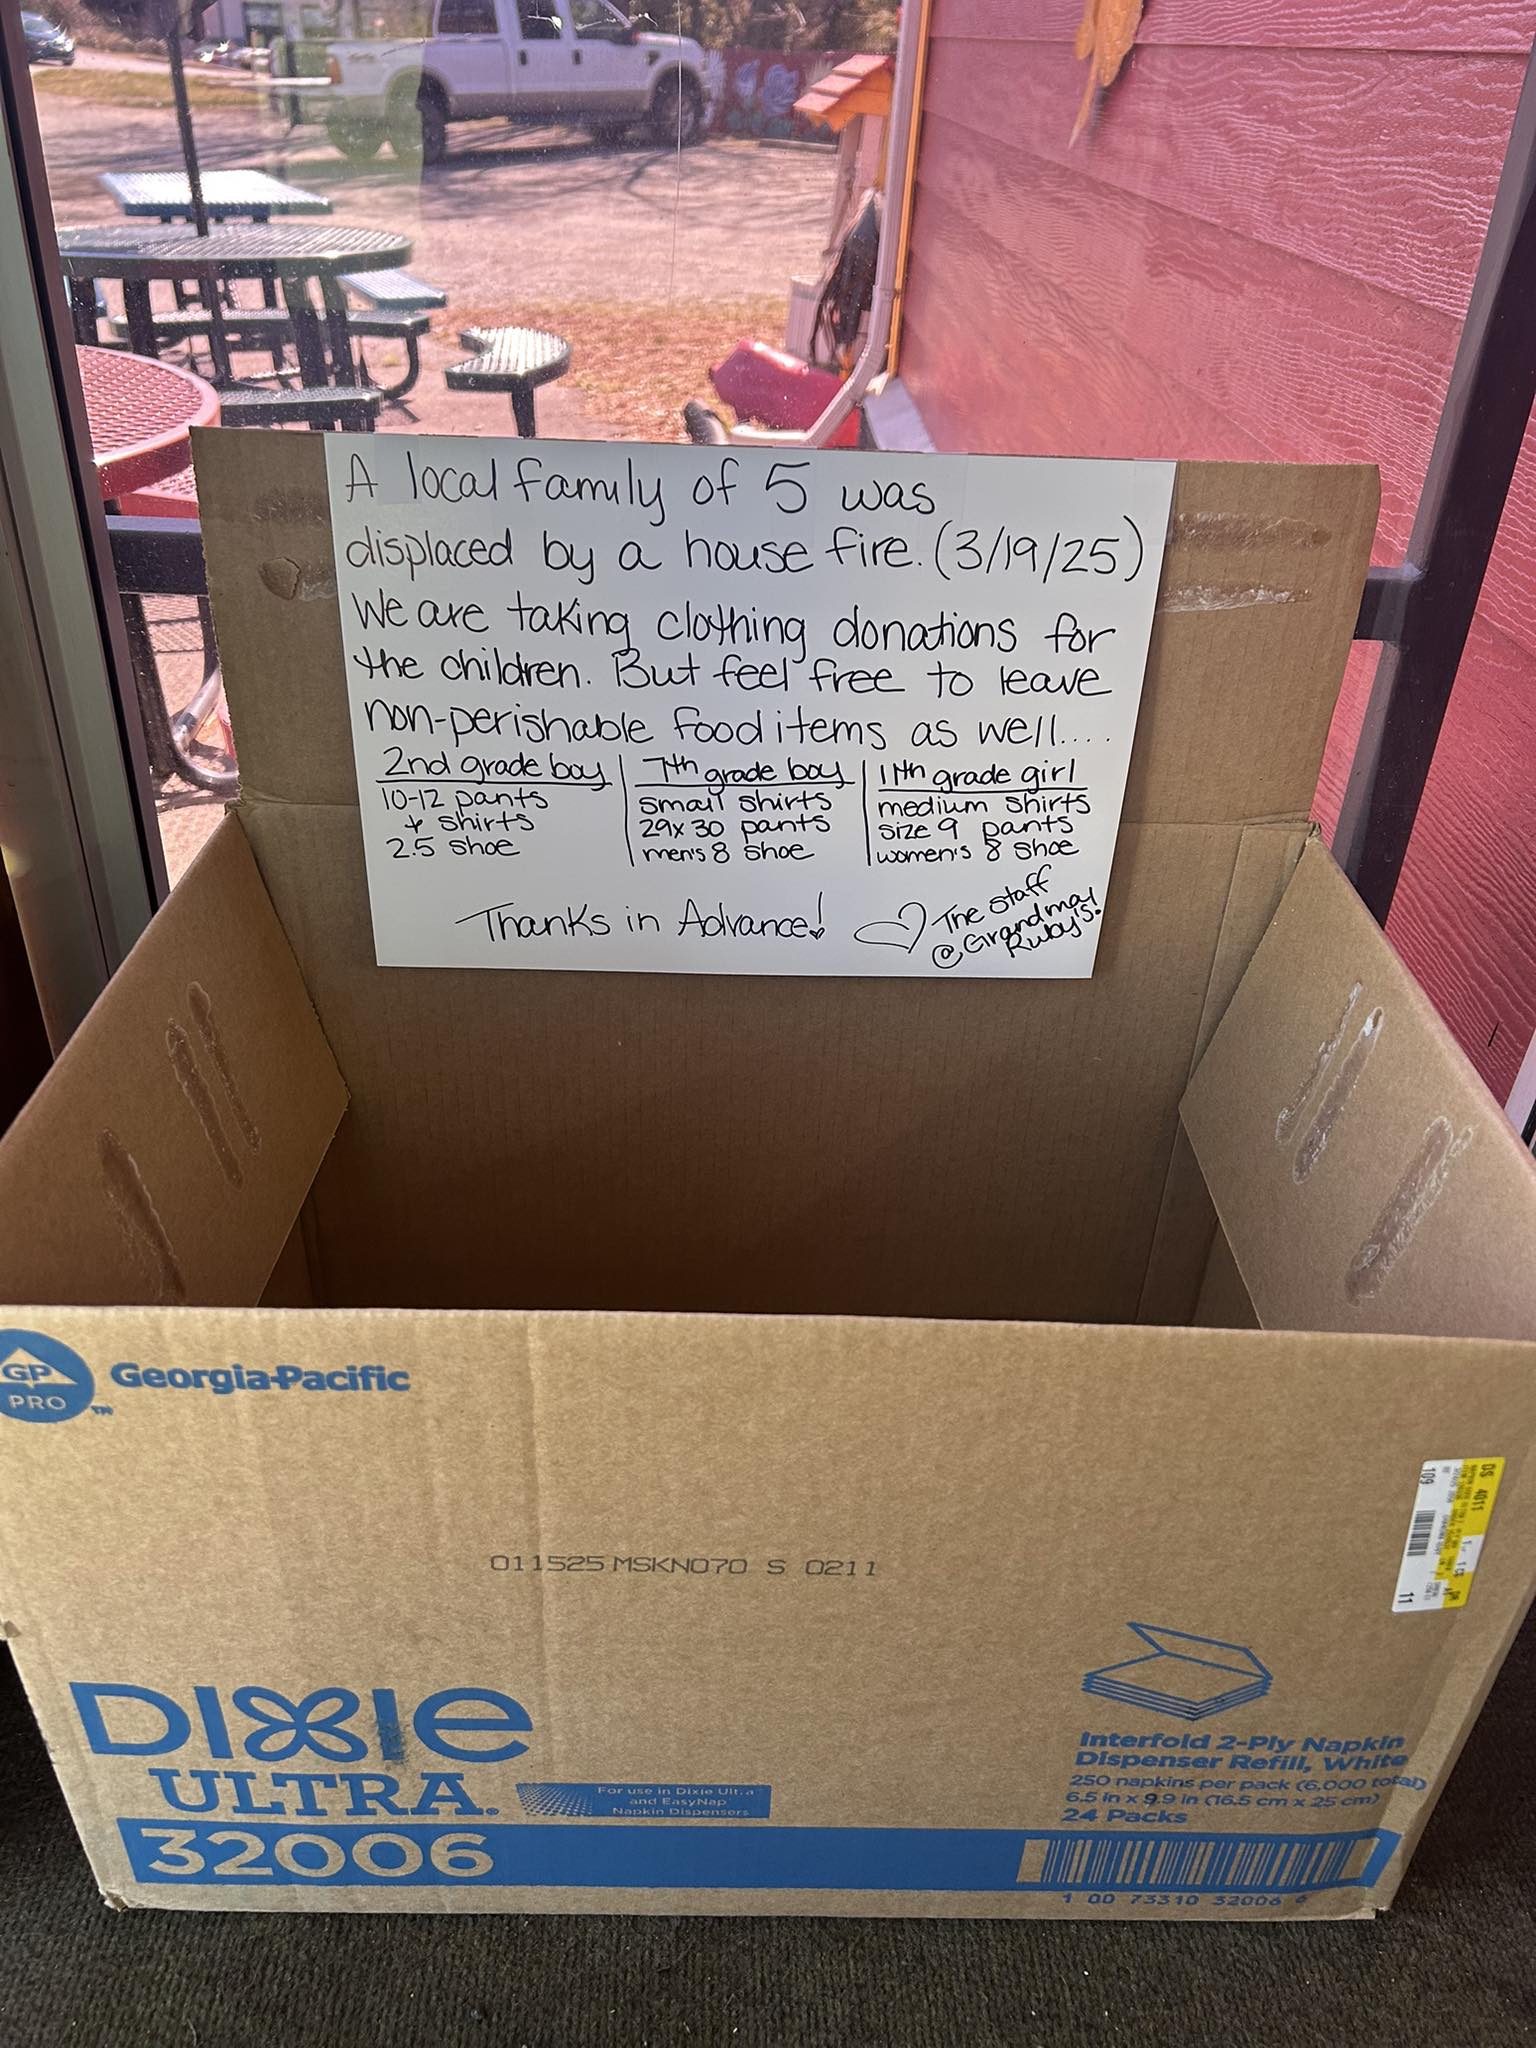 A local family of 5 was
displaced by a house fire. (3/19/25)
We are taking clothing donations for
the children. But feel free to leave
non-perishable food items as well....
2nd grade boy
10-12 pants
+ shirts
2.5 shoe
7th grade boy
small shirts
29x30 pants
men's 8 shoe
11th grade girl
medium shirts
size 9 pants
women's 8 shoe
Thanks in Advance!
The Staff
@ Grandma
Ruby's!
GP
PRO
TM
Georgia-Pacific
DS 4011
109
11
011525 MSKN070 S 0211
DIXIE
ULTRA®
For use in Dixie Ultra
and EasyNap
Napkin Dispensers
32006
Interfold 2-Ply Napkin
Dispenser Refill, White
250 napkins per pack (6,000 total)
6.5 in x 9.9 in (16.5 cm x 25 cm)
24 Packs
1 00 73310 32006 6